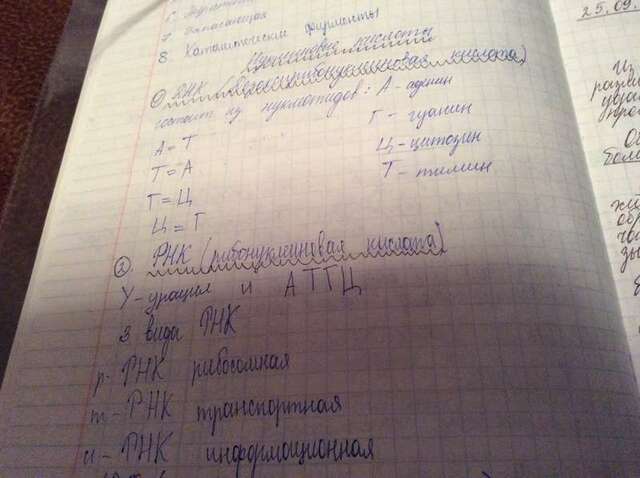 7. Запасающая
8. Каталитическая ферменты
Нуклеиновые кислоты
① ДНК (дезоксирибонуклеиновая кислота)
состоит из нуклеотидов: А - аденин
А = Т
Г - гуанин
Т = А
Ц - цитозин
Г = Ц
Т - тимин
Ц = Г
② РНК (рибонуклеиновая кислота)
У - урацил и А Г Ц
3 вида РНК
р - РНК рибосомная
т - РНК транспортная
и - РНК информационная
25.09.
Из